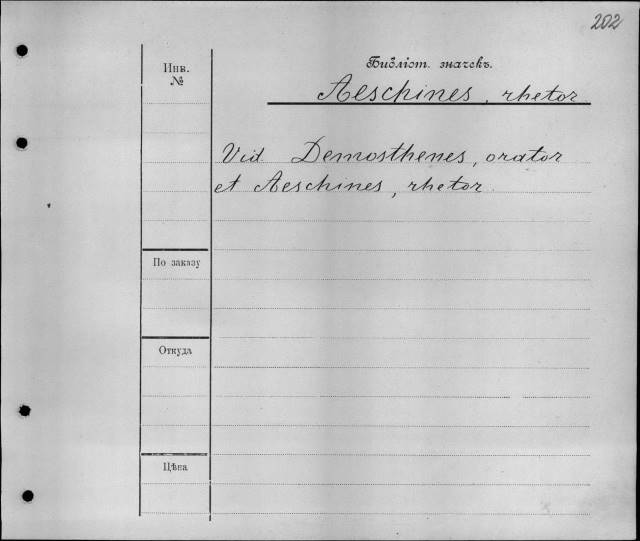 202
Инв.
№
Библіот. значекъ.
Aeschines, rhetor
Vid. Demosthenes, orator
et Aeschines, rhetor
По заказу
Откуда
Цѣна